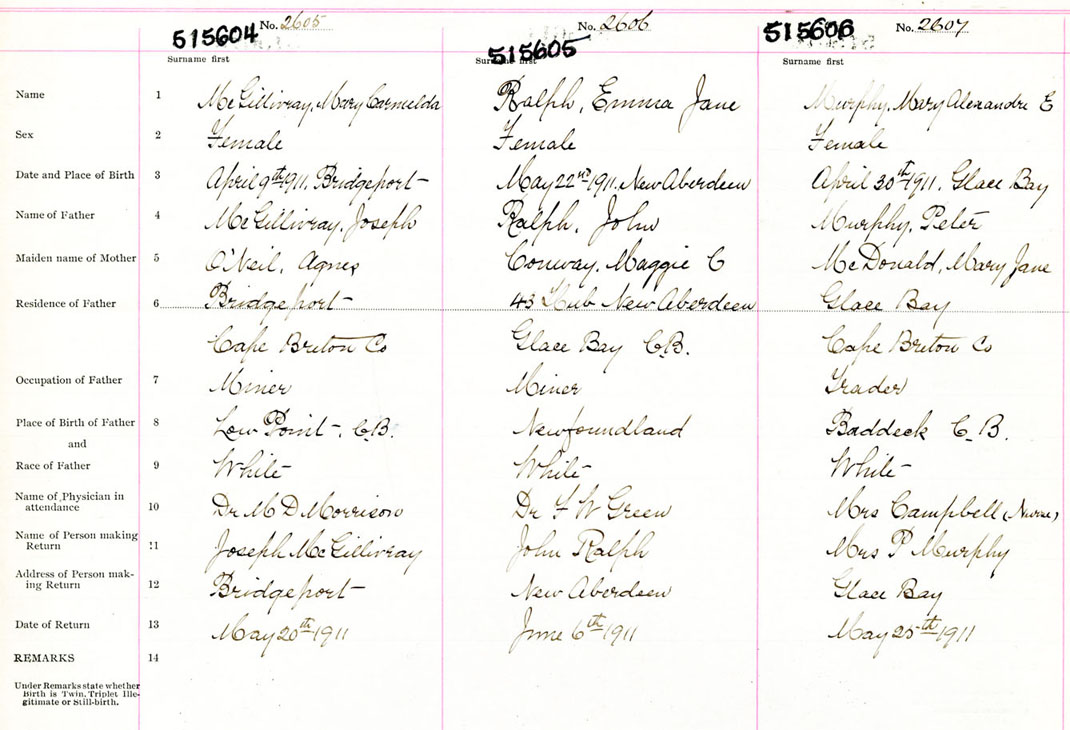 No. 2605 No. 2606 No. 2607
515604 515605 515606
Surname first Surname first Surname first
Name 1 McGillivray, Mary Carmelda Ralph, Emma Jane Murphy, Mary Alexandre E
Sex 2 Female Female Female
Date and Place of Birth 3 April 9th 1911, Bridgeport May 22nd 1911, New Aberdeen April 30th 1911, Glace Bay
Name of Father 4 McGillivray, Joseph Ralph, John Murphy, Peter
Maiden name of Mother 5 O'Neil, Agnes Conway, Maggie C McDonald, Mary Jane
Residence of Father 6 Bridgeport 43 Hub New Aberdeen Glace Bay
Cape Breton Co Glace Bay C.B. Cape Breton Co
Occupation of Father 7 Miner Miner Trader
Place of Birth of Father 8 Low Point, C.B. Newfoundland Baddeck C.B.
and
Race of Father 9 White White White
Name of Physician in
attendance 10 Dr M D Morrison Dr F W Green Mrs Campbell (Nurse)
Name of Person making
Return 11 Joseph McGillivray John Ralph Mrs P Murphy
Address of Person mak-
ing Return 12 Bridgeport New Aberdeen Glace Bay
Date of Return 13 May 20th 1911 June 6th 1911 May 25th 1911
REMARKS 14
Under Remarks state whether
Birth is Twin, Triplet Ille-
gitimate or Still-birth.